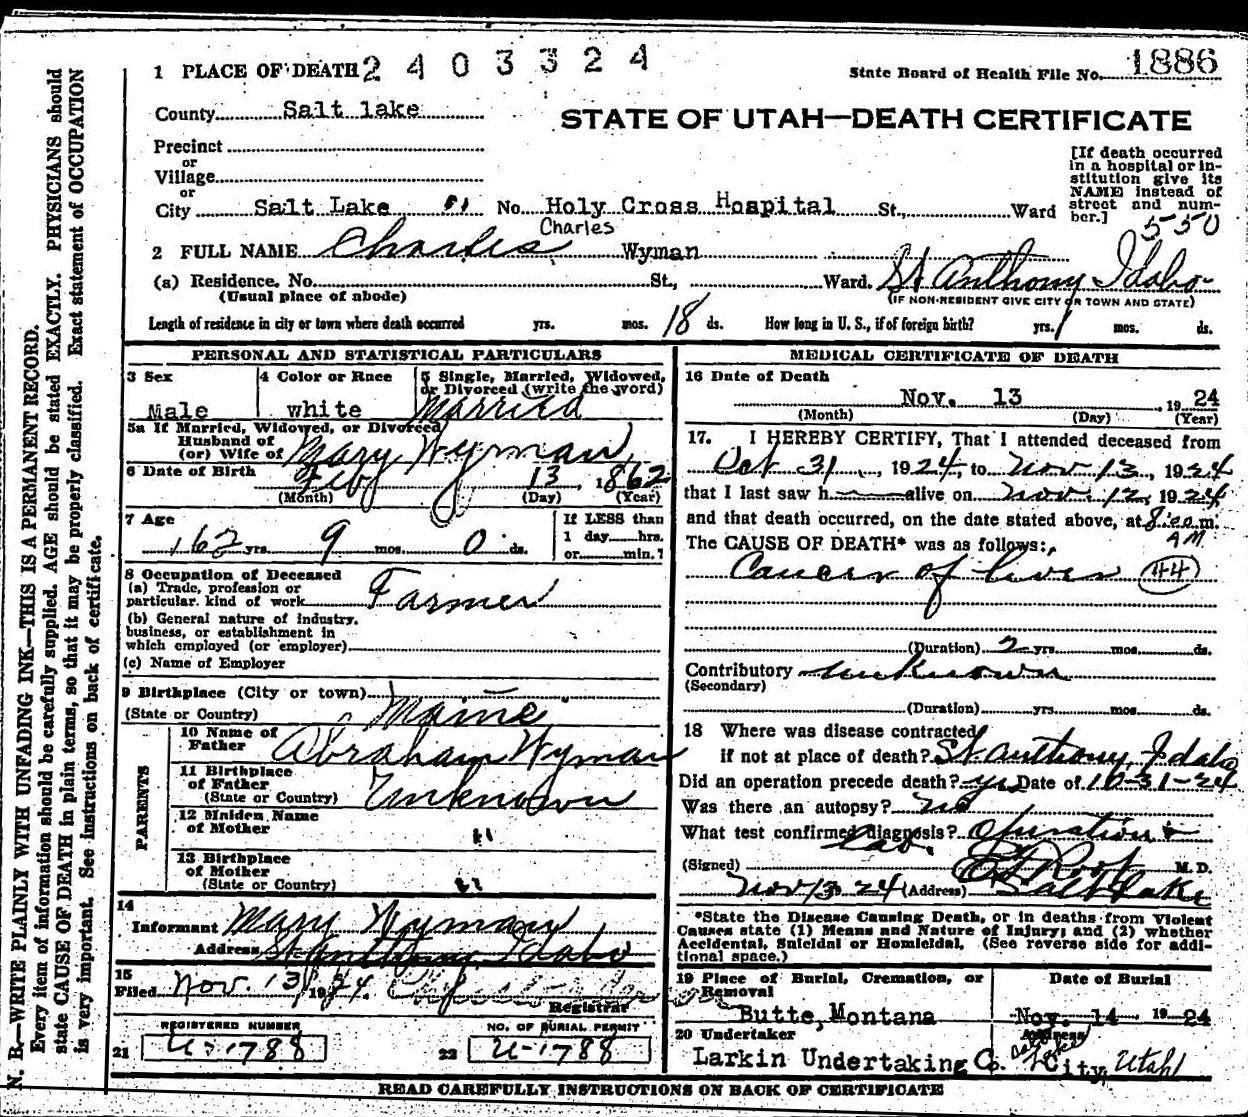 1 PLACE OF DEATH 2403324
State Board of Health File No. 1886
County Salt lake
STATE OF UTAH—DEATH CERTIFICATE
Precinct
or
Village
or
City Salt Lake No. Holy Cross Hospital St., Ward
[If death occurred in a hospital or institution give its NAME instead of street and number.]
550
Charles
2 FULL NAME Charles Wyman
(a) Residence. No. St., Ward. St Anthony Idaho
(Usual place of abode)
(IF NON-RESIDENT GIVE CITY OR TOWN AND STATE)
Length of residence in city or town where death occurred yrs. mos. 18 ds. How long in U. S., if of foreign birth? yrs. mos. ds.
PERSONAL AND STATISTICAL PARTICULARS
3 Sex
Male
4 Color or Race
white
5 Single, Married, Widowed, or Divorced (write the word)
Married
5a If Married, Widowed, or Divorced
Husband of
(or) Wife of Mary Wyman
6 Date of Birth
Feby 13, 1862
(Month) (Day) (Year)
7 Age
62 yrs. 9 mos. 0 ds.
If LESS than
1 day hrs.
or min.?
8 Occupation of Deceased
(a) Trade, profession or
particular kind of work Farmer
(b) General nature of industry,
business, or establishment in
which employed (or employer)
(c) Name of Employer
9 Birthplace (City or town) —
(State or Country) Maine
PARENTS
10 Name of
Father Abraham Wyman
11 Birthplace
of Father
(State or Country) Unknown
12 Maiden Name
of Mother "
13 Birthplace
of Mother
(State or Country) "
14
Informant Mary Wyman
Address St Anthony Idaho
15
Filed Nov. 13, 1924.
Registrar
REGISTERED NUMBER
21 U-1788
NO. OF BURIAL PERMIT
22 U-1788
MEDICAL CERTIFICATE OF DEATH
16 Date of Death
Nov. 13, 1924
(Month) (Day) (Year)
17. I HEREBY CERTIFY, That I attended deceased from
Oct 31, 1924, to Nov 13, 1924
that I last saw h alive on Nov. 12, 1924
and that death occurred, on the date stated above, at 8:00 m.
AM
The CAUSE OF DEATH* was as follows:
Cancer of liver (44)
(Duration) 2 yrs. mos. ds.
Contributory unknown
(Secondary)
(Duration) yrs. mos. ds.
18 Where was disease contracted
if not at place of death? St. Anthony, Idaho
Did an operation precede death? yes Date of 10-31-24
Was there an autopsy? no
What test confirmed diagnosis? Operation +
Lab.
(Signed) Root M. D.
Nov 13 24 (Address) Salt Lake
*State the Disease Causing Death, or in deaths from Violent
Causes state (1) Means and Nature of Injury; and (2) whether
Accidental, Suicidal or Homicidal. (See reverse side for addi-
tional space.)
19 Place of Burial, Cremation, or
Removal
Butte, Montana
Date of Burial
Nov. 14 1924
20 Undertaker
Larkin Undertaking Co.
Address
Salt Lake City, Utah
READ CAREFULLY INSTRUCTIONS ON BACK OF CERTIFICATE
N. B.—WRITE PLAINLY WITH UNFADING INK—THIS IS A PERMANENT RECORD.
Every item of information should be carefully supplied. AGE should be stated EXACTLY. PHYSICIANS should
state CAUSE OF DEATH in plain terms, so that it may be properly classified. Exact statement of OCCUPATION
is very important. See instructions on back of certificate.